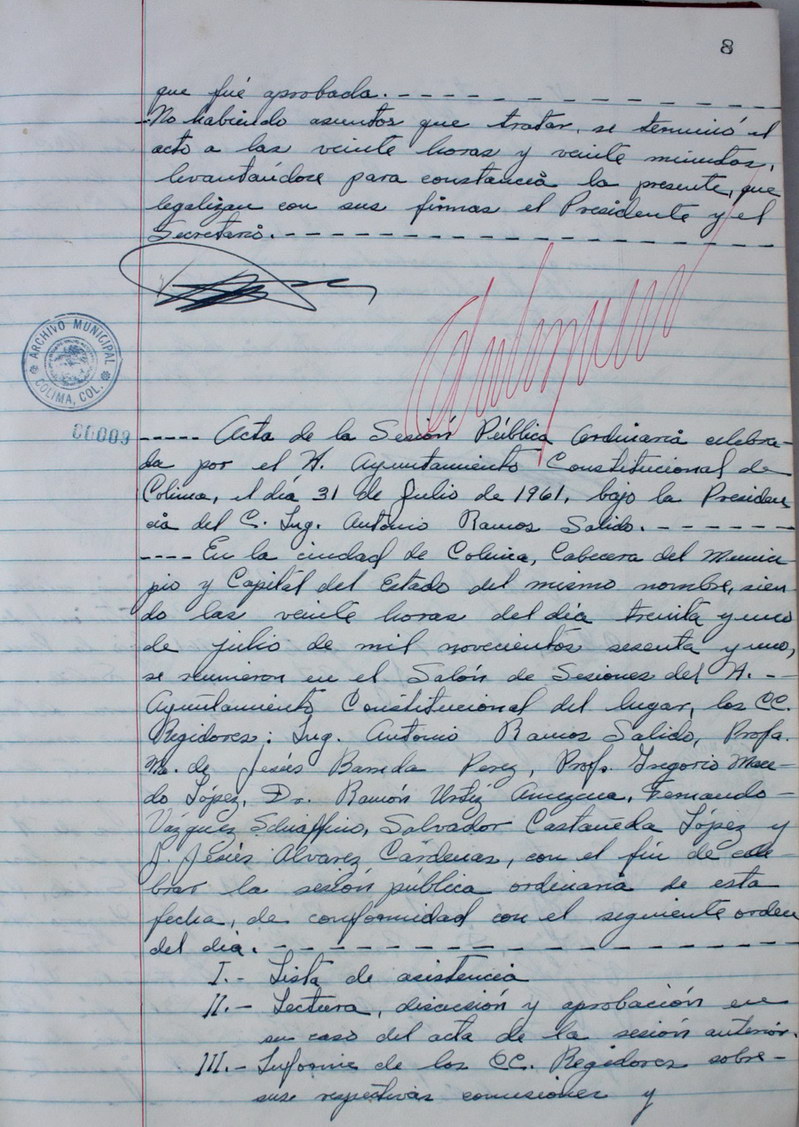 8
que fué aprobada. - - - - - - - - - - - - - -
- No habiendo asuntos que tratar, se terminó el
acto a las veinte horas y veinte minutos,
levantándose para constancia la presente, que
legalizan con sus firmas el Presidente y el
Secretario. - - - - - - - - - - - - - - - - - -
ARCHIVO MUNICIPAL
COLIMA, COL.
00009
- - - - - Acta de la Sesión Pública Ordinaria celebra-
da por el H. Ayuntamiento Constitucional de
Colima, el día 31 de Julio de 1961, bajo la Presiden
cia del C. Ing. Antonio Ramos Salido. - - - - - - -
- - - - En la ciudad de Colima, Cabecera del Munici
pio y Capital del Estado del mismo nombre, sien
do las veinte horas del día treinta y uno
de julio de mil novecientos sesenta y uno,
se reunieron en el Salón de Sesiones del H. -
Ayuntamiento Constitucional del lugar, los CC.
Regidores: Ing. Antonio Ramos Salido, Profa.
Ma. de Jesús Barreda Perez, Profr. Gregorio Mace-
do López, Dr. Ramón Ortiz Amezcua, Fernando -
Vázquez Schiaffino, Salvador Castañeda López y
J. Jesús Alvarez Cárdenas, con el fin de cele
brar la sesión pública ordinaria de esta
fecha, de conformidad con el siguiente orden
del día. - - - - - - - - - - - - - - - - - - -
I.- Lista de asistencia
II.- Lectura, discusión y aprobación en
su caso del acta de la sesión anterior.
III.- Informe de los CC. Regidores sobre-
sus respectivas comisiones y